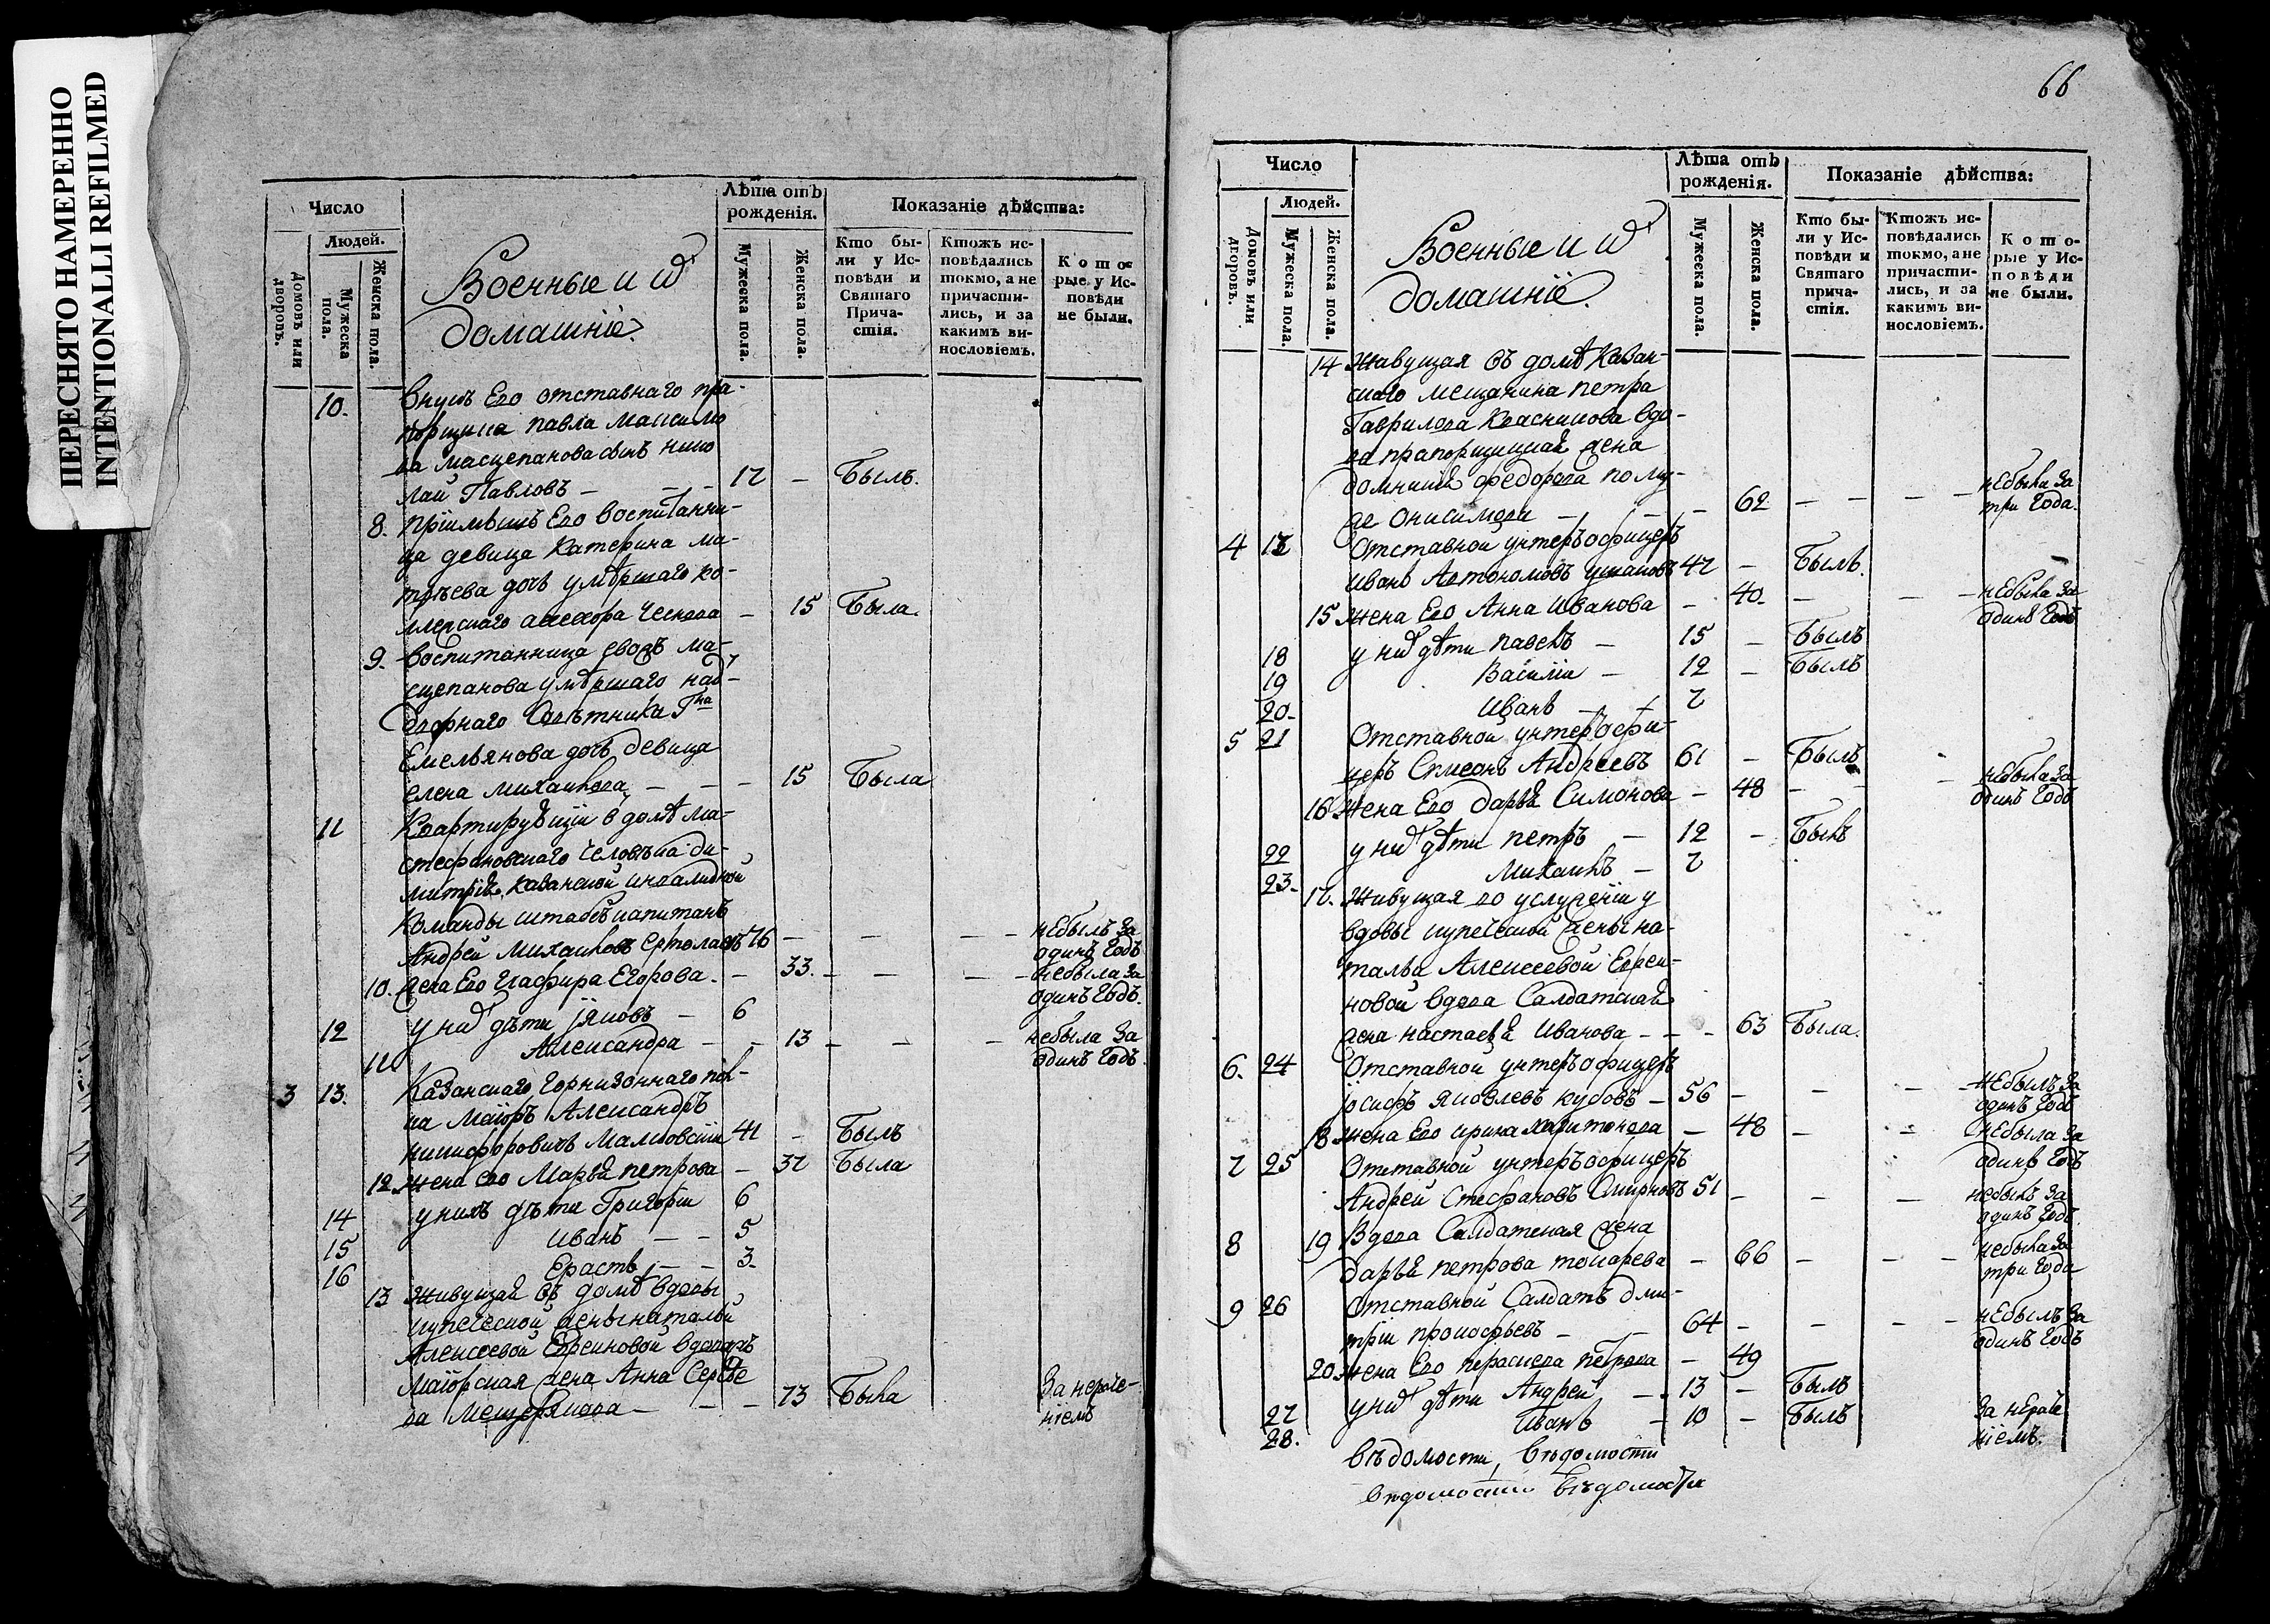 ПЕРЕСНЯТО НАМЕРЕННО
INTENTIONALLI REFILMED
Число
Людей.
Домовъ или дворовъ.
Мужеска пола.
Женска пола.
Военные и
домашнiе.
Лѣта отъ рожденія.
Мужеска пола.
Женска пола.
Показаніе дѣйства:
Кто были у Исповѣди и Святаго Причастія.
Ктожъ исповѣдались токмо, а не причастились, и за какимъ винословіемъ.
Которые у Исповѣди не были.
10. внукъ Его отставнаго пра-
порщика павла
сынъ нико
лай Павловъ — 17 — Былъ.
8. Его воспитанни-
ца девица Катерина
дочь умѣршаго ко-
— 15 Была.
9. воспитанница
умѣршаго над-
ворнаго Совѣтника Гна
Емельянова дочь девица
елена михаилова — — — 15 Была
11 Квартирующiи в домѣ
человѣка ди-
митрiя казанской инвалидной
команды штабсъ капитанъ
Андрей Михаиловъ 76 — — — — небылъ за
одинъ годъ
10. жена Его глафира Егорова — 33. — — — небыла за
одинъ годъ.
12 у них дѣти яковъ — 6
11 Александра — — 13 — — — небыла за
одинъ годъ.
3 13. Казанскаго горнизоннаго пол-
ка Маiоръ Александръ
никифоровичъ 41 — Былъ
12 жена его Марья петрова — 37 Была
14 у нихъ дѣти Григорiи 6
15 иванъ — — 5
16 Ерастъ — — 3.
13 живущая въ домѣ вдовы
купеческой жены натальи
Алексеевой вдова
Маiорская жена Анна Сергѣе
ва — — — 73 Была За нераче-
нiемъ
66
Число
Людей.
Домовъ или дворовъ.
Мужеска пола.
Женска пола.
Военные и
домашнiе.
Лѣта отъ рожденія.
Мужеска пола.
Женска пола.
Показаніе дѣйства:
Кто были у Исповѣди и Святаго причастія.
Ктожъ исповѣдались токмо, а не причастились, и за какимъ винословіемъ.
Которые у Исповѣди не были.
14 живущая въ домѣ казан-
скаго мещанина петра
Гаврилова вдо-
ва прапорщицкая жена
федорова по му-
же онисимова — — — 62 — — — — небыла за
три года.
4 17 Отставной унтеръ офицеръ
иванъ Автономовъ 47 — Былъ.
15 жена Его Анна иванова — 40. — — — небыла за
одинъ годъ
18 у них дѣти павелъ — 15 — Былъ
19 Василiи — 12 — Былъ
20 иванъ — — 7
5 21 Отставнои унтеръ офи-
церъ Симеонъ Андреевъ 61 — Былъ
16 жена Его дарья Симонова — 48 — — — небыла за
одинъ годъ
22 у них дѣти петръ — 12 — Былъ
23. михаилъ — 7
17. живущая во услуженiи у
вдовы купеческой жены на-
тальи Алексеевой
вдова Салдатская
жена настасья иванова — — — 63 Была.
6. 24 Отставной унтеръ офицеръ
iосифъ яковлевъ — 56 — — — небылъ за
одинъ годъ
18 жена Его ирина харитонова — 48 — — небыла за
одинъ годъ
7 25 Отставной унтеръ офицеръ
Андрей Стефановъ Смирновъ 51 — — — небылъ за
одинъ годъ.
8 19 Вдова Салдатская жена
дарья петрова токарева — 66 — — — небыла за
три года
9 26 Отставной Салдатъ дми-
трiи прокофьевъ — — 64 — — — — небылъ за
одинъ годъ
20 жена Его петрова — 49
27 у них дѣти Андрей — 13 — Былъ
28. иванъ — 10 — Былъ За нераче
нiемъ.
вѣдомости, вѣдомости
вѣдомости вѣдомости